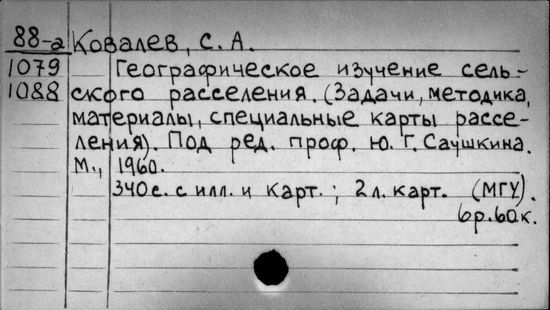 88-а Ковалев, С. А.
1079 Географическое изучение сель-
1088 ского расселения. (Задачи, методика,
материалы, специальные карты рассе-
ления). Под ред. проф. Ю. Г. Саушкина.
М., 1960.
340 с. с илл. и карт. ; 2 л. карт. (МГУ).
6р.60к.